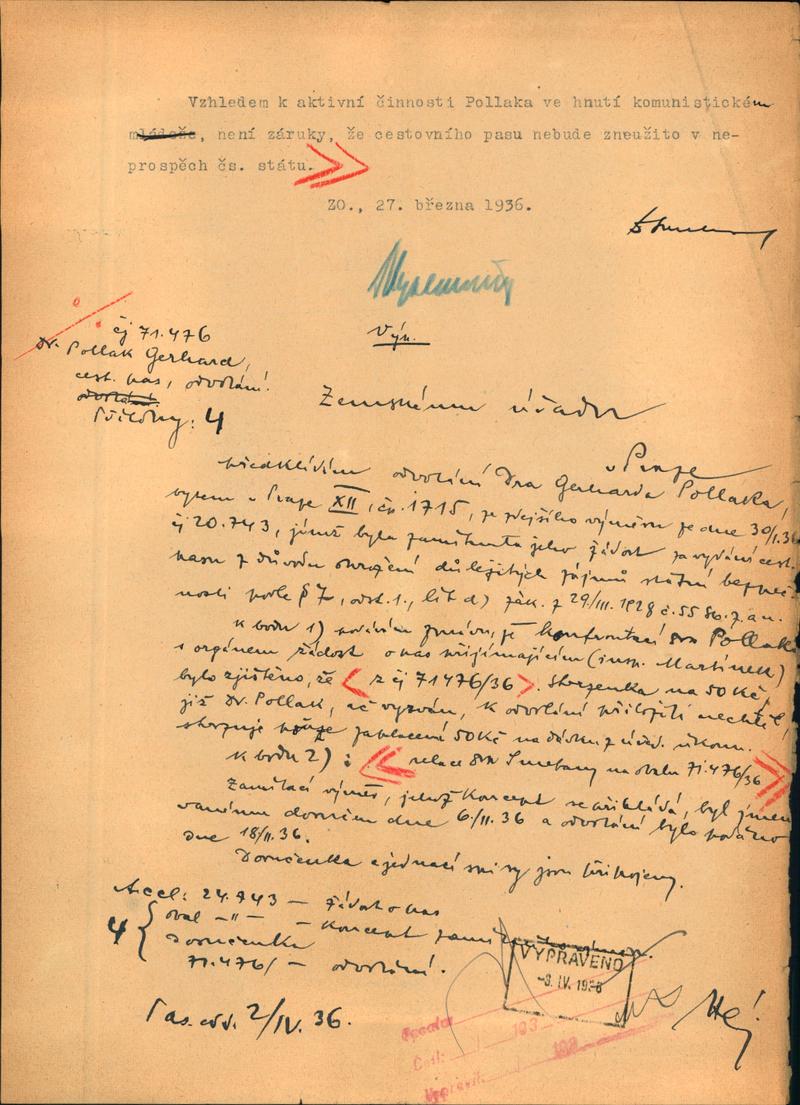 Vzhledem k aktivní činnosti Pollaka ve hnutí komunistickém
mládeže, není záruky, že cestovního pasu nebude zneužito v ne-
prospěch čs. státu.
ZO., 27. března 1936.
Výn.
čj 71.476
Dr. Pollak Gerhard,
cest. pas, odvolání.
Přílohy: 4
Zemskému úřadu
v Praze
Předkládám odvolání Dra Gerharda Pollaka,
bytem v Praze XII, čp. 1715, ze zdejšího výměru ze dne 30/I.36
čj 20.743, jímž byla zamítnuta jeho žádost za vydání cest.
pasu z důvodu ohrožení důležitých zájmů státní bezpeč-
nosti podle § 7, odst. 1., lit d) zák. z 29/III.1928 č. 55 Sb. z. a n.
K bodu 1) podávám zprávu, že konfrontací Pollaka
s orgánem žádost o pas přijímajícím (insp. Martínek)
bylo zjištěno, že z čj 71476/36. Stvrzenka na 50 Kč,
již Dr. Pollak, ač vyzván, k odvolání přiložiti nechtěl,
stvrzuje pouze zaplacení 50 Kč na dávku z úřed. úkonu.
K bodu 2): relace na obalu 71.476/36
Zamítací výměr, jehož koncept se přikládá, byl jmeno-
vanému doručen dne 6/II.36 a odvolání bylo podáno
dne 18/II.36.
Doručenka a jednací spisy jsou připojeny.
Accl: 24.943 — žádost o pas
obal —"— — koncept
4 doručenka
71.476/— odvolání.
Pas. odd. 2/IV.36.
VYPRAVENO
-8. IV. 1936